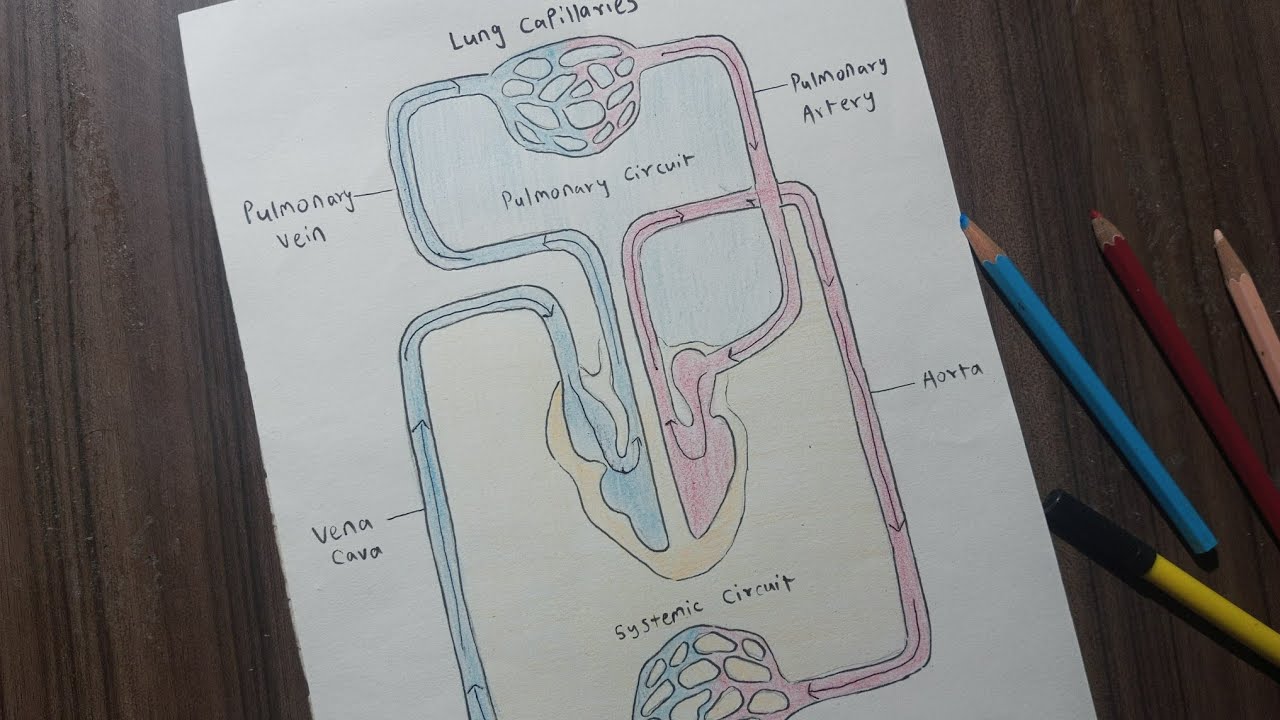 Lung Capillaries
Pulmonary
Artery
Pulmonary Circuit
Pulmonary
vein
Aorta
Vena
Cava
Systemic Circuit